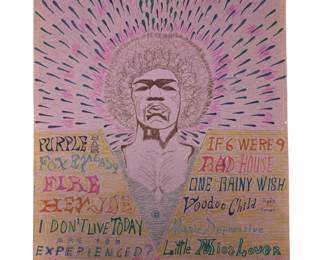 PURPLE HAZE
FOXEY LADY
FIRE
HEY JOE
I DON'T LIVE TODAY
ARE YOU
EXPERIENCED?
IF 6 WERE 9
RED HOUSE
ONE RAINY WISH
Voodoo Child
Manic Depression
Little Miss Lover